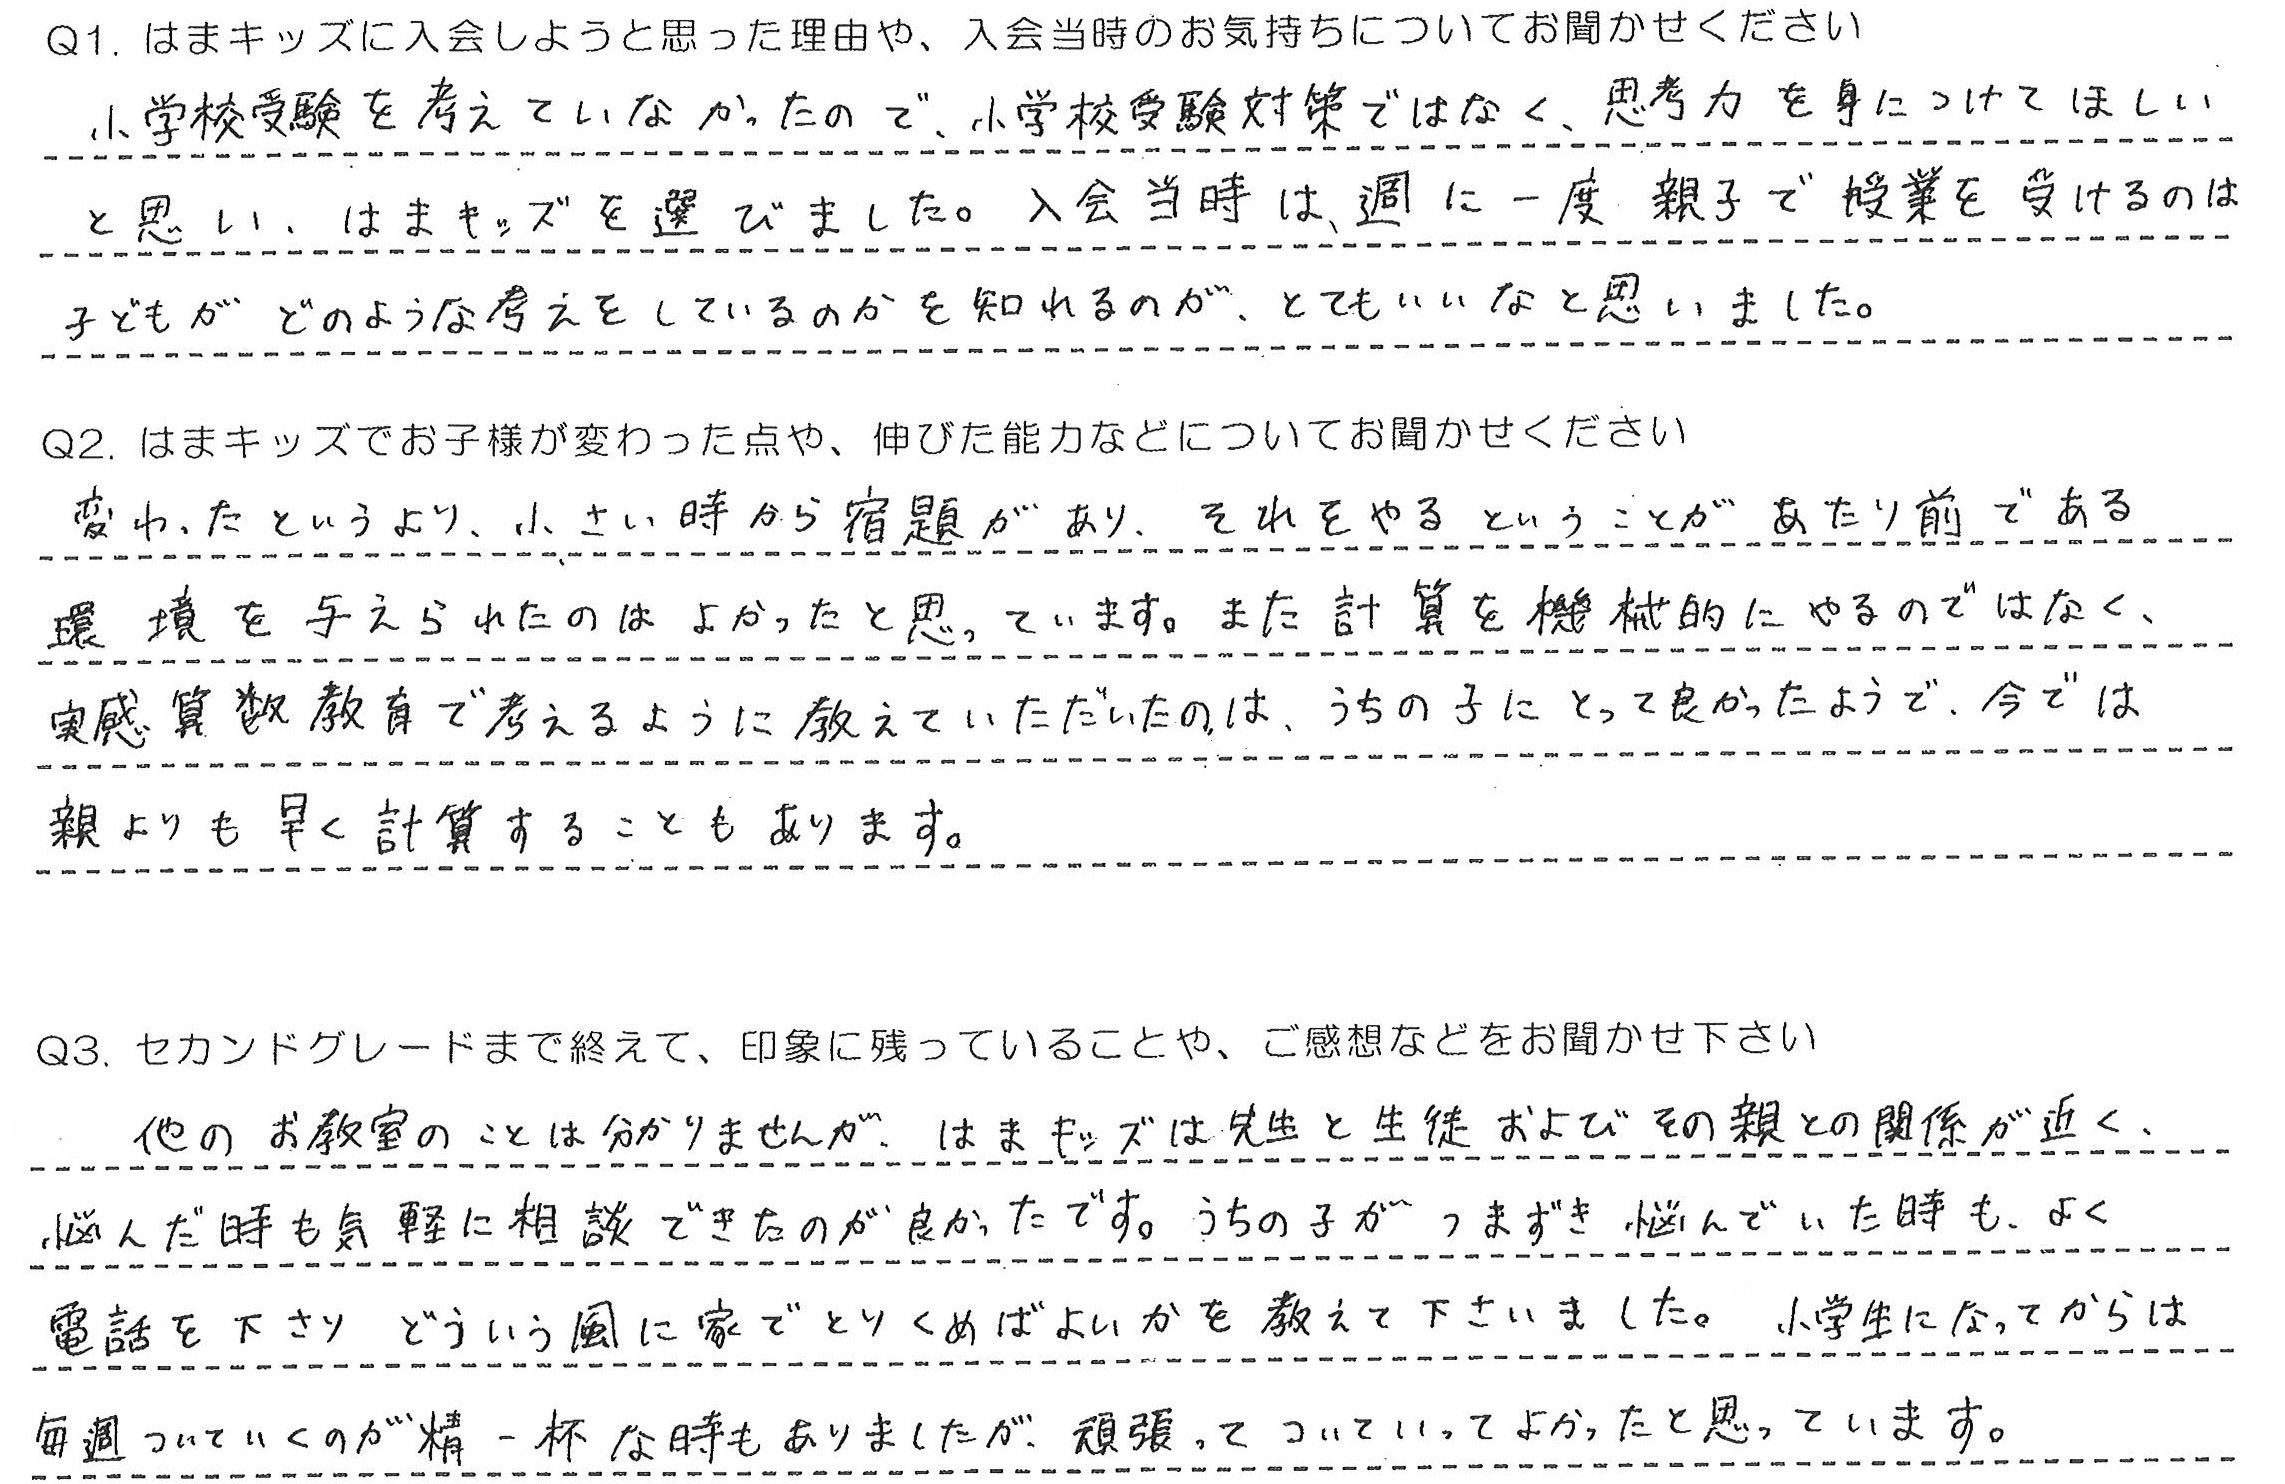 Q1. はまキッズに入会しようと思った理由や、入会当時のお気持ちについてお聞かせください
小学校受験を考えていなかったので、小学校受験対策ではなく、思考力を身につけてほしい
と思い、はまキッズを選びました。入会当時は、週に一度 親子で授業を受けるのは
子どもが どのような考えをしているのかを知れるのが、とてもいいなと思いました。
Q2. はまキッズでお子様が変わった点や、伸びた能力などについてお聞かせください
変わったというより、小さい時から宿題があり、それをやるということがあたり前である
環境を与えられたのはよかったと思っています。また計算を機械的にやるのではなく、
実感算数教育で考えるように教えていただいたのは、うちの子にとって良かったようで、今では
親よりも早く計算することもあります。
Q3. セカンドグレードまで終えて、印象に残っていることや、ご感想などをお聞かせ下さい
他のお教室のことは分かりませんが、はまキッズは先生と生徒およびその親との関係が近く、
悩んだ時も気軽に相談できたのが良かったです。うちの子がつまずき悩んでいた時も、よく
電話を下さり どういう風に家でとりくめばよいかを教えて下さいました。 小学生になってからは
毎週ついていくのが精一杯な時もありましたが、頑張ってついていってよかったと思っています。